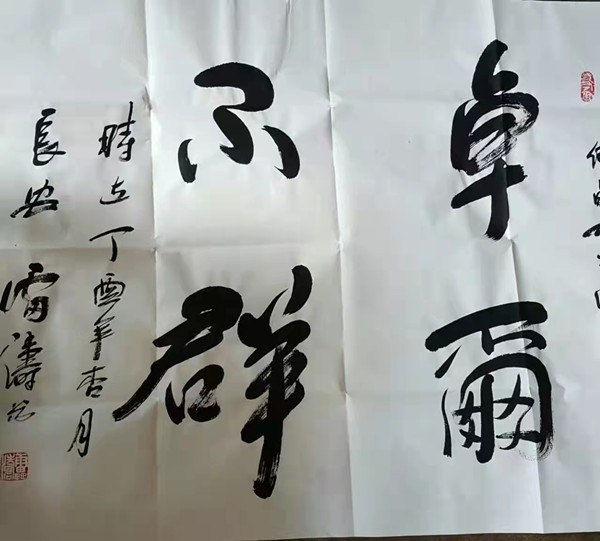 卓爾
不群
時在丁酉年杏月
長安雷濤书